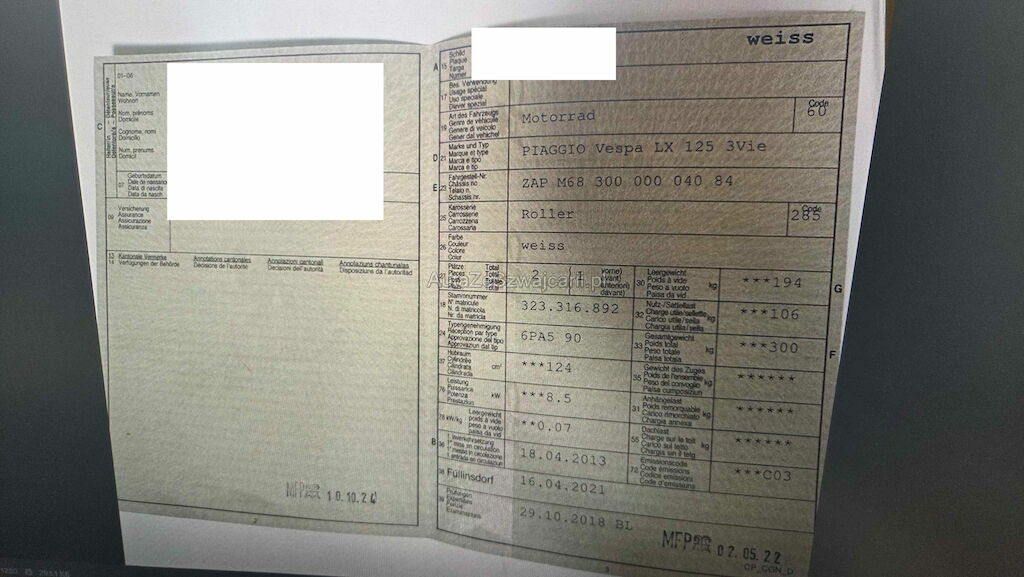 01-06
Name, Vornamen
Wohnort
Nom, prénoms
Domicile
Cognome, nomi
Domicilio
Num, prenums
Domicil
C
07
Geburtsdatum
Date de naissance
Data di nascita
Data da nasch.
09
Versicherung
Assurance
Assicurazione
Assicuranza
13
14
Kantonale Vermerke
Verfügungen der Behörde
Annotations cantonales
Décisions de l'autorité
Annotazioni cantonali
Decisioni dell'autorità
Annotaziuns chantunalas
Disposiziuns da l'autoritad
10.10.24
2
weiss
A 15
Schild
Plaque
Targa
Numer
17
Bes. Verwendung
Usage spécial
Uso speciale
Diever spezial
19
Art des Fahrzeugs
Genre de véhicule
Genere di veicolo
Gener dal vehichel
Motorrad
Code
60
D 21
Marke und Typ
Marque et type
Marca e tipo
Marca e tip
PIAGGIO Vespa LX 125 3Vie
E 23
Fahrgestell-Nr.
Châssis no
Telaio n.
Schassis nr.
ZAP M68 300 000 040 84
25
Karosserie
Carrosserie
Carrozzeria
Carossaria
Roller
Code
285
26
Farbe
Couleur
Colore
Color
weiss
Plätze
Places
Total
Total
2
1
vorne)
avant)
anteriori)
davant)
30
Leergewicht
Poids à vide
Peso a vuoto
Paisa da vid
kg
***194
G
18
Stammnummer
N° matricule
N. di matricola
Nr. da matricla
323.316.892
32
Nutz-/Sattellast
Charge utile/sellette
Carico utile/sella
Chargia utila/sella
kg
***106
24
Typengenehmigung
Réception par type
Approvazione del tipo
Approvaziun dal tip
6PA5 90
33
Gesamtgewicht
Poids total
Peso totale
Paisa totala
kg
***300
F
37
Hubraum
Cylindrée
Cilindrata
Cilindrada
cm³
***124
35
Gewicht des Zuges
Poids de l'ensemble
Peso del convoglio
Paisa cumposiziun
kg
******
76
Leistung
Puissance
Potenza
Prestaziun
kW
***8.5
31
Anhängelast
Poids remorquable
Carico rimorchiato
Chargia annexa
kg
******
78 kW/kg
Leergewicht
poids à vide
peso a vuoto
paisa da vid
**0.07
55
Dachlast
Charge sur le toit
Carico sul tetto
Chargia sin il tetg
kg
******
B 36
1. Inverkehrsetzung
1re mise en circulation
1a messa in circolazione
1. entrada en circulaziun
18.04.2013
72
Emissionscode
Code émissions
Codice emissioni
Code d'emissiuns
***C03
38
Füllinsdorf
16.04.2021
39
Prüfungen
Expertises
Perizie
Examinaziuns
29.10.2018 BL
MFP
02.05.22
3